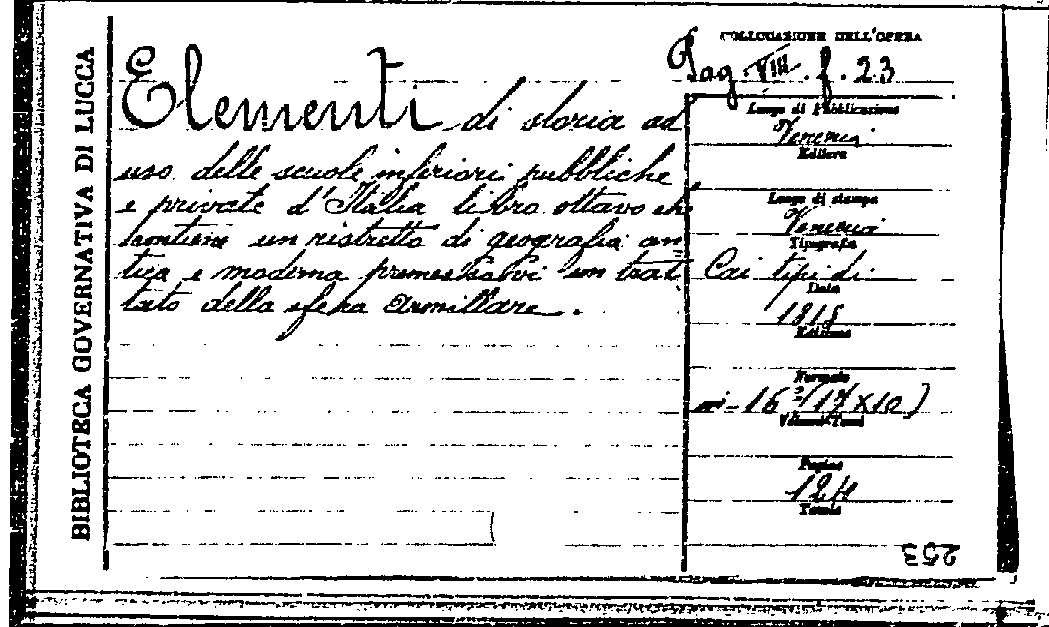 BIBLIOTECA GOVERNATIVA DI LUCCA
COLLOCAZIONE DELL'OPERA
Pag. VIII. f. 23
Elementi di storia ad
uso delle scuole inferiori pubbliche
e private d'Italia libro ottavo che
contiene un ristretto di geografia an
tica e moderna premessovi un trat
tato della sfera armillare.
Luogo di Pubblicazione
Venezia
Editore
Luogo di stampa
Venezia
Tipografia
Coi tipi di
Data
1818
Edizione
Formato
in-16° (17 x 10)
Volumi-Tomi
Pagine
124
Tavole
253